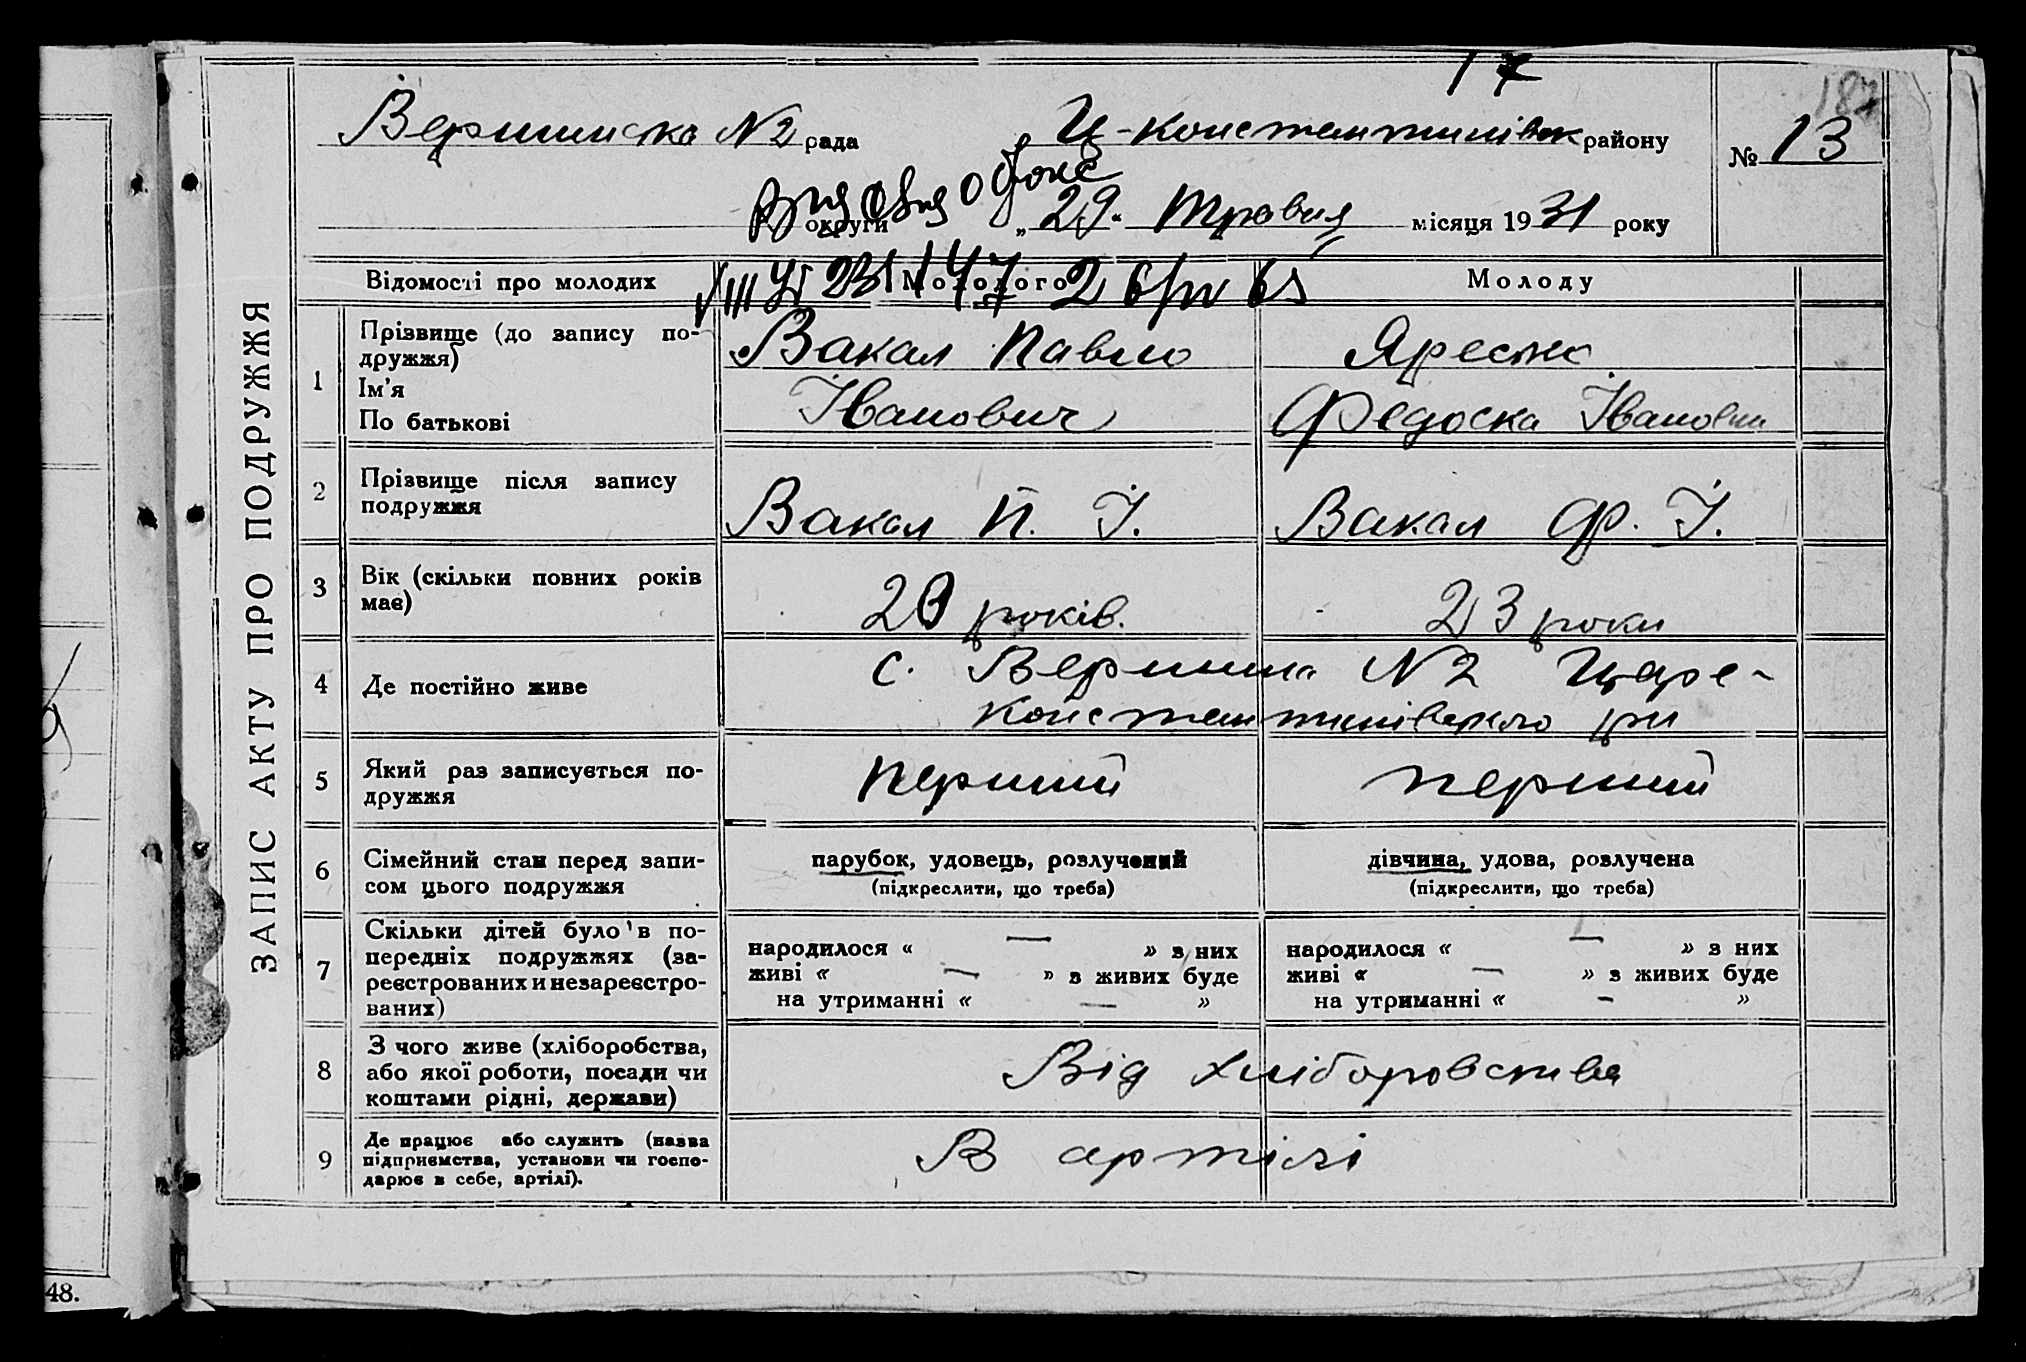 17
187
Вершинська N2 рада Ц-Константинівск району № 13
округи „29“ Травня місяця 1931 року
ЗАПИС АКТУ ПРО ПОДРУЖЖЯ
Відомості про молодих Молодого Молоду
VIII УГ 231147 2 бря 65
1 Прізвище (до запису по-
дружжя)
Ім’я
По батькові
Вакал Павло
Іванович
Яресько
Федоска Івановна
2 Прізвище після запису
подружжя
Вакал П. І. Вакал Ф. І.
3 Вік (скільки повних років
має)
20 років. 23 роки
4 Де постійно живе
с. Вершина N2 Царе-
Константинівского р-ну
5 Який раз записується по-
дружжя
перший перший
6 Сімейний стан перед запи-
сом цього подружжя
парубок, удовець, розлучений
(підкреслити, що треба)
дівчина, удова, розлучена
(підкреслити, що треба)
7 Скільки дітей було в по-
передніх подружжях (за-
реєстрованих и незареєстро-
ваних)
народилося « — » з них
живі « — » з живих буде
на утриманні « — »
народилося « — » з них
живі « — » з живих буде
на утриманні « - »
8 З чого живе (хліборобства,
або якої роботи, посади чи
коштами рідні, держави)
Від хліборобства
9 Де працює або служить (назва
підприємства, установи чи госпо-
дарює в себе, артілі).
В артілі
48.